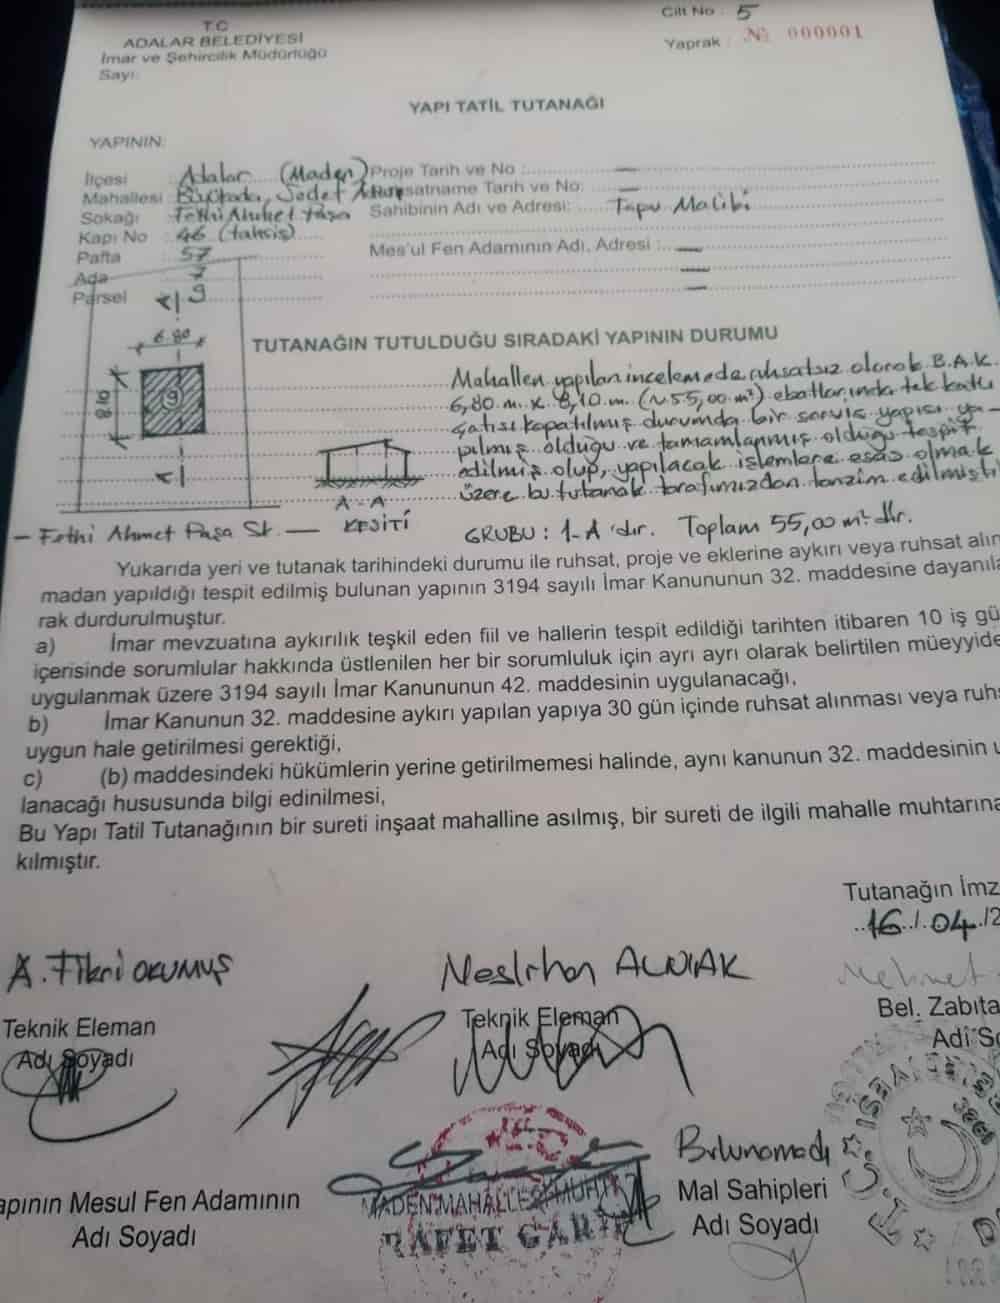 T.C
ADALAR BELEDİYESİ
İmar ve Şehircilik Müdürlüğü
Sayı:
Cilt No : 5
Yaprak : № 000001
YAPI TATİL TUTANAĞI
YAPININ:
İlçesi : Adalar (Maden)
Mahallesi Büyükada, Sedef Adası
Sokağı : Fethi Ahmet Paşa
Kapı No : 46 (tahsis)
Pafta : 57
Ada : 7
Parsel : 9
Proje Tarih ve No : —
Ruhsatname Tarih ve No: —
Sahibinin Adı ve Adresi: Tapu Maliki
Mes'ul Fen Adamının Adı, Adresi : —
TUTANAĞIN TUTULDUĞU SIRADAKİ YAPININ DURUMU
6.80
8.10
9
A - A
KESİTİ
– Fethi Ahmet Paşa Sk. —
Mahallen yapılan incelemede ruhsatsız olarak B.A.K.
6,80 m. x 8,10 m. (~55,00 m²) ebatlarında tek katlı
çatısı kapatılmış durumda bir servis yapısı ya-
pılmış olduğu ve tamamlanmış olduğu tespit
edilmiş olup, yapılacak işlemlere esas olmak
üzere bu tutanak tarafımızdan tanzim edilmişti
GRUBU : 1-A 'dır. Toplam 55,00 m² dir.
Yukarıda yeri ve tutanak tarihindeki durumu ile ruhsat, proje ve eklerine aykırı veya ruhsat alın
madan yapıldığı tespit edilmiş bulunan yapının 3194 sayılı İmar Kanununun 32. maddesine dayanıla
rak durdurulmuştur.
a) İmar mevzuatına aykırılık teşkil eden fiil ve hallerin tespit edildiği tarihten itibaren 10 iş gü
içerisinde sorumlular hakkında üstlenilen her bir sorumluluk için ayrı ayrı olarak belirtilen müeyyide
uygulanmak üzere 3194 sayılı İmar Kanununun 42. maddesinin uygulanacağı,
b) İmar Kanunun 32. maddesine aykırı yapılan yapıya 30 gün içinde ruhsat alınması veya ruhs
uygun hale getirilmesi gerektiği,
c) (b) maddesindeki hükümlerin yerine getirilmemesi halinde, aynı kanunun 32. maddesinin u
lanacağı hususunda bilgi edinilmesi,
Bu Yapı Tatil Tutanağının bir sureti inşaat mahalline asılmış, bir sureti de ilgili mahalle muhtarına
kılmıştır.
Tutanağın İmz
16./.04./2
A. Fikri OKUMUŞ
Teknik Eleman
Adı Soyadı
Neslihan ALNIAK
Teknik Eleman
Adı Soyadı
Mehmet
Bel. Zabıta
Adı So
apının Mesul Fen Adamının
Adı Soyadı
MADEN MAHALLESİ MUHTARI
RAFET GARİP
Bulunamadı
Mal Sahipleri
Adı Soyadı